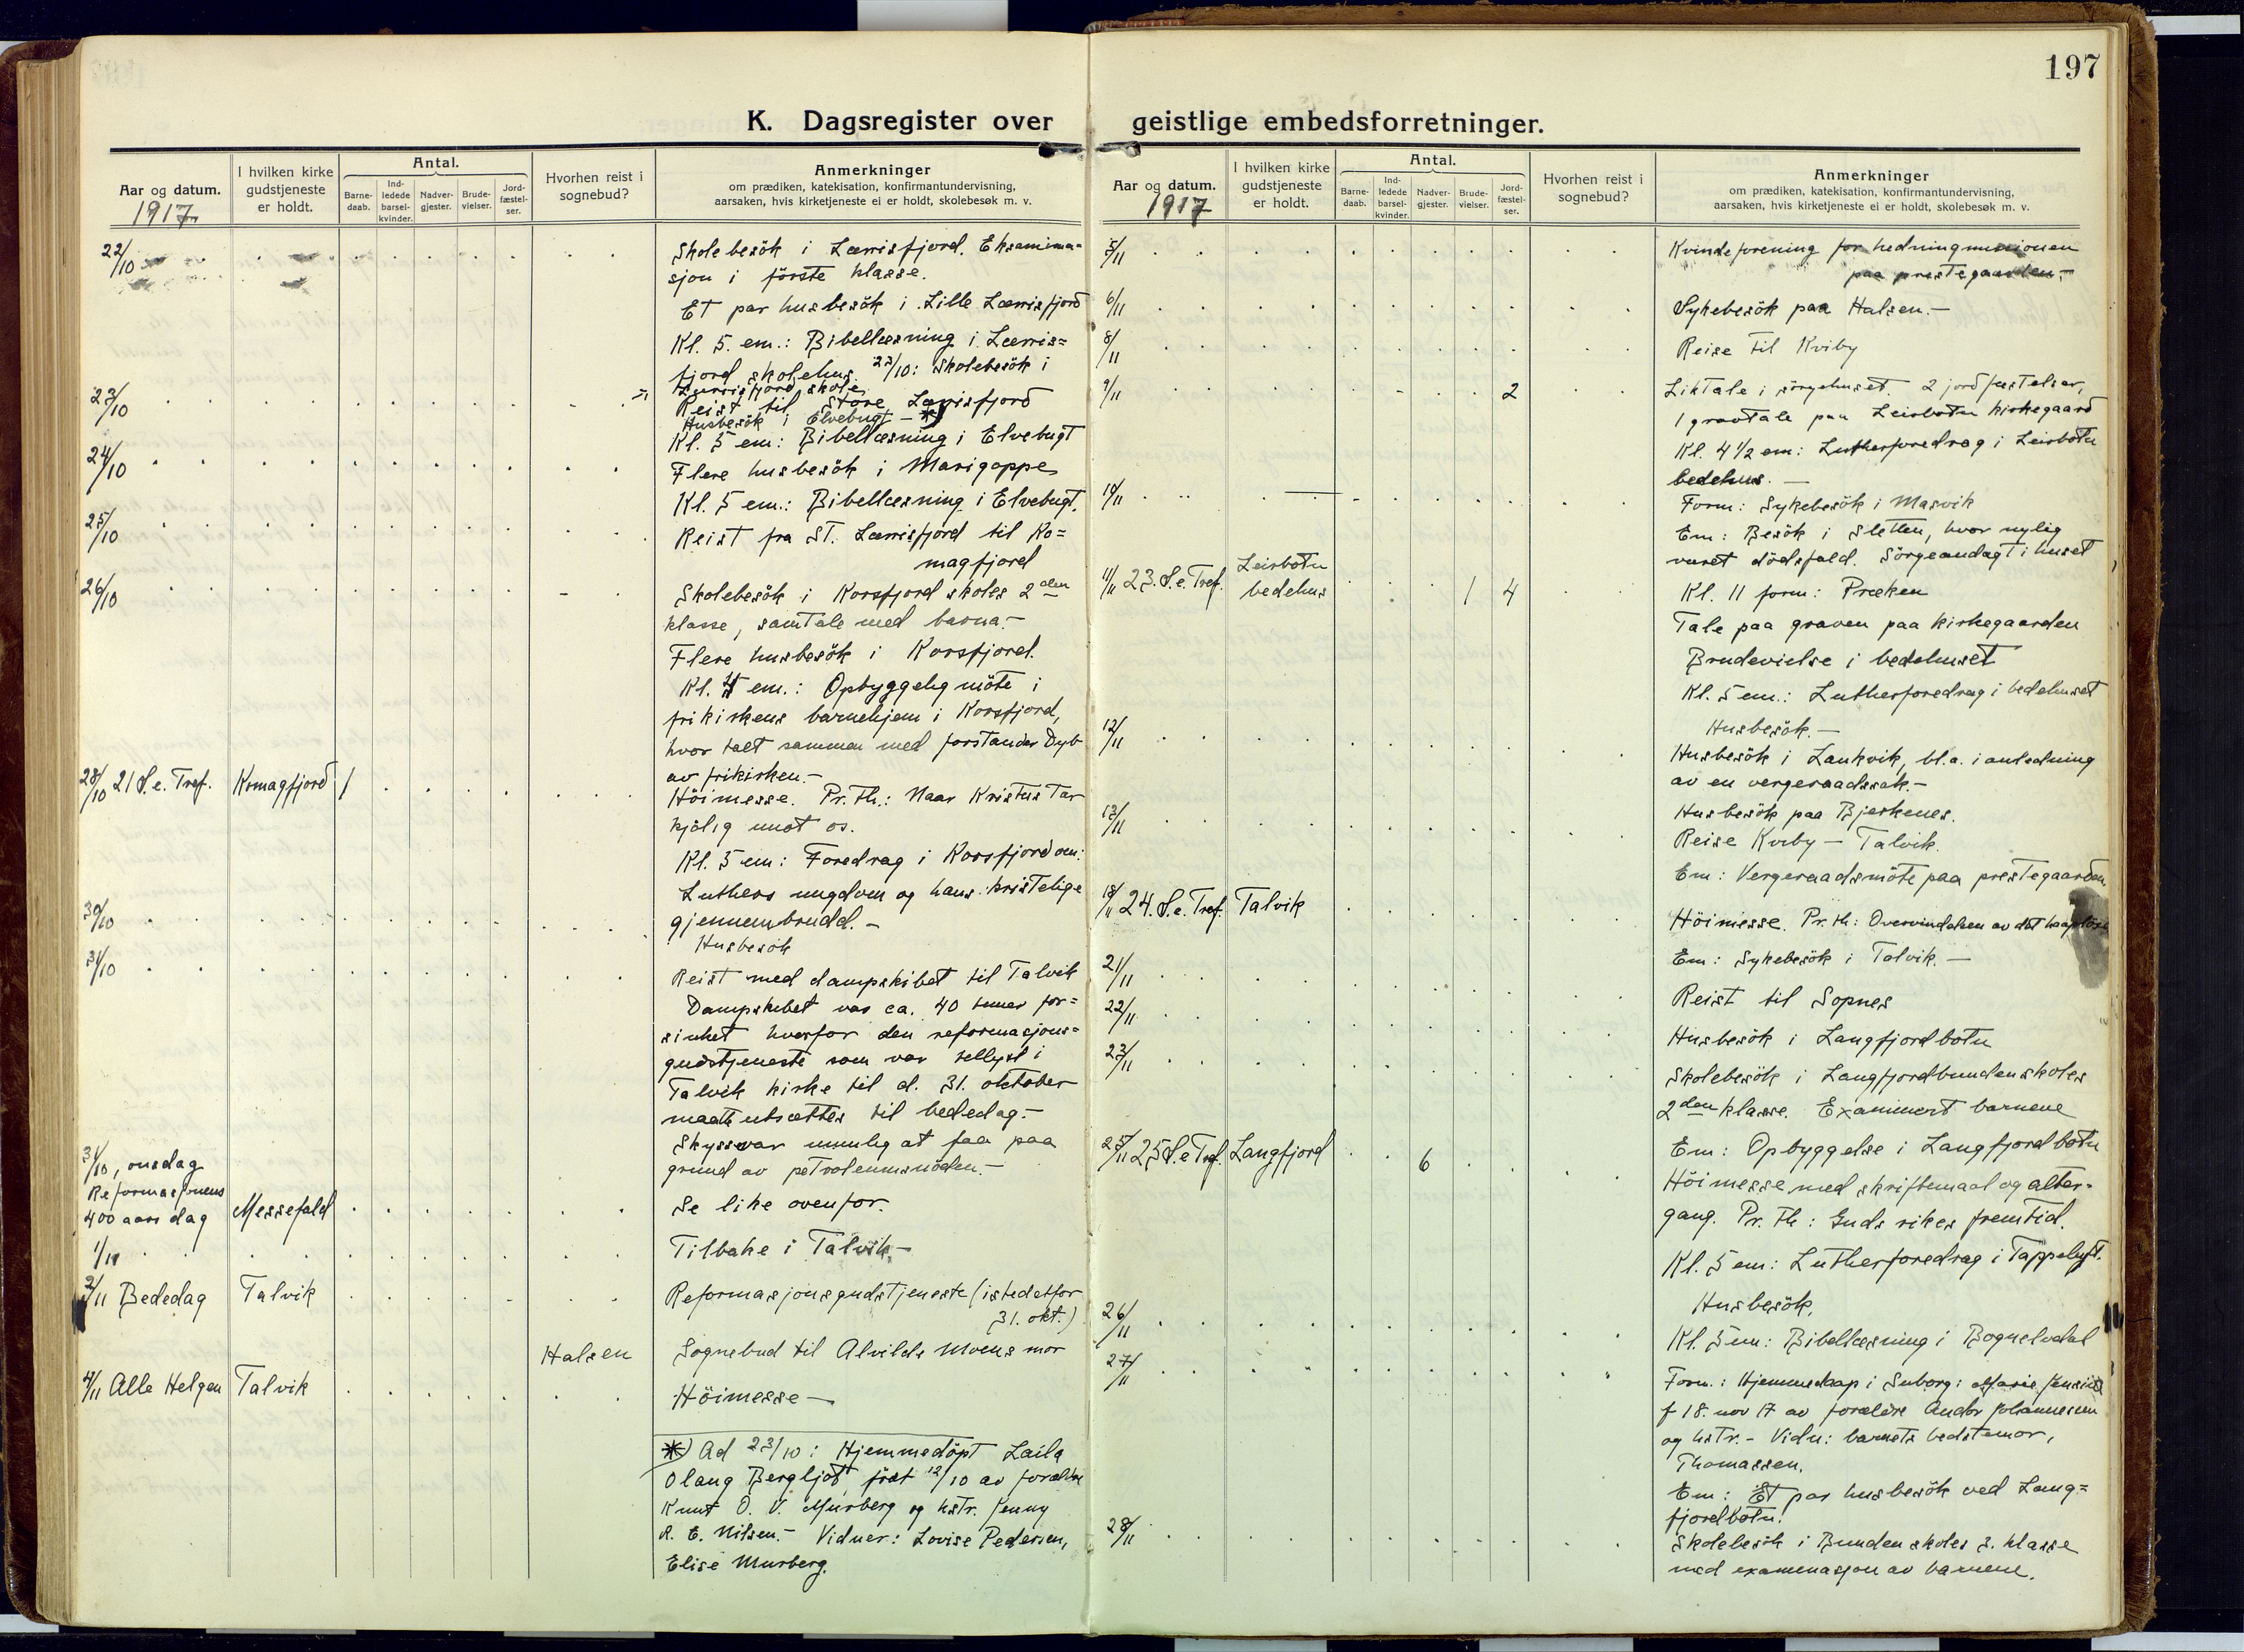 197
K. Dagsregister over geistlige embedsforretninger.
Aar og datum.
1917
I hvilken kirke
gudstjeneste
er holdt.
Antal.
Barne-
daab.
Ind-
ledede
barsel-
kvinder.
Nadver-
gjester.
Brude-
vielser.
Jord-
fæstel-
ser.
Hvorhen reist i
sognebud?
Anmerkninger
om prædiken, katekisation, konfirmantundervisning,
aarsaken, hvis kirketjeneste ei er holdt, skolebesøk m. v.
22/10 Skolebesök i Lerrisfjord. Eksamina=
sjon i förste klasse.
Et par husbesök i Lille Lerrisfjord
Kl. 5. em.: Bibellæsning i Lerris=
fjord skolehus. 23/10: Skolebesök i
Lerrisfjord skole
23/10 Reist til Store Lerrisfjord
Husbesök i Elvebugt - *)
Kl. 5 em: Bibellæsning i Elvebugt
24/10 Flere husbesök i Marigoppe
Kl. 5 em.: Bibellæsning i Elvebugt.
25/10 Reist fra St. Lerrisfjord til Ko=
magfjord
26/10 Skolebesök i Korsfjord skoles 2den
klasse, samtale med barna.-
Flere husbesök i Korsfjord.
Kl. em.: Opbyggelig möte i
frikirkens barnehjem i Korsfjord,
hvor talt sammen med forstander Dyb
av frikirken.-
28/10 21 S. e. Tref. Komagfjord 1 Höimesse. Pr. Th.: Naar Kristus tar
kjölig imot os.
Kl. 5 em: Foredrag i Korsfjord om:
Luthers ungdom og hans kristelige
gjennembrudd.-
30/10 Husbesök
31/10 Reist med dampskibet til Talvik
Dampskibet var ca. 40 timer for=
sinket hvorfor den reformasjons=
gudstjeneste som var tellyst i
Talvik kirke til d. 31. oktober
maatte utsættes til bededag.-
Skyss var umulig at faa paa
grund av petroleumsnöden.-
31/10, onsdag
Reformasjonens
400 aars dag Messefald Se like ovenfor.
1/11 Tilbake i Talvik.-
2/11 Bededag Talvik Reformasjonsgudstjeneste (istedetfor
31. okt.)
Halsen Sognebud til Alvilde Moens mor
4/11 Alle Helgen Talvik Höimesse -
*) Ad 23/10: Hjemmedöpt Laila
Olaug Bergljot, föt 12/10 av forældre
Knut O. V. Murberg og hstr. Jenny
R. E. Nilsen.- Vidner: Lovise Pedersen,
Elise Murberg.
Aar og datum.
1917
I hvilken kirke
gudstjeneste
er holdt.
Antal.
Barne-
daab.
Ind-
ledede
barsel-
kvinder.
Nadver-
gjester.
Brude-
vielser.
Jord-
fæstel-
ser.
Hvorhen reist i
sognebud?
Anmerkninger
om prædiken, katekisation, konfirmantundervisning,
aarsaken, hvis kirketjeneste ei er holdt, skolebesøk m. v.
5/11 Kvindeforening for hedningmissionen
paa prestegaarden.-
6/11 Sykebesök paa Halsen.-
8/11 Reise til Kviby
9/11 2 Liktale i sörgehuset. 2 jordfæstelser,
1 gravtale paa Leirbotn kirkegaard
Kl. 4 1/2 em: Lutherforedrag i Leirbotn
bedehus.-
10/11 Form: Sykebesök i Masvik
Em: Besök i Sletten, hvor nylig
været dödsfald. Sörgeandagt i huset
11/11 23. S. e. Tref. Leirbotn
bedehus 1 4 Kl. 11 form: Præken
Tale paa graven paa kirkegaarden
Brudevielse i bedehuset
Kl. 5 em.: Lutherforedrag i bedehuset
Husbesök.-
12/11 Husbesök i Laukvik, bl.a. i anledning
av en vergeraadssak.-
Husbesök paa Bjerkenes.
13/11 Reise Kviby - Talvik.
Em: Vergeraadsmöte paa prestegaarden
18/11 24. S. e. Tref. Talvik Höimesse. Pr. th: Overvindelsen av det haaplöse
Em: Sykebesök i Talvik.-
21/11 Reist til Sopnes
22/11 Husbesök i Langfjordbotn
23/11 Skolebesök i Langfjordbunden skoles
2den klasse. Examinert barnene
Em: Opbyggelse i Langfjordbotn
25/11 25 S. e Tref. Langfjord 6 Höimesse med skriftemaal og alter-
gang. Pr. th: Guds rikes fremtid.
Kl. 5 em: Lutherforedrag i Tappeluft.
26/11 Husbesök.
Kl. 5 em: Bibellæsning i Bognelvdal
27/11 Form.: Hjemmedaap i Suborg: Marie
f 18. nov 17 av forældre Andr Johannessen
og hstr.- Vidn: barnets bedstemor,
Thomassen.
Em: Et par husbesök ved Lang=
fjordbotn.
28/11 Skolebesök i Bunden skoles 3. klasse
med examenasjon av barnene.